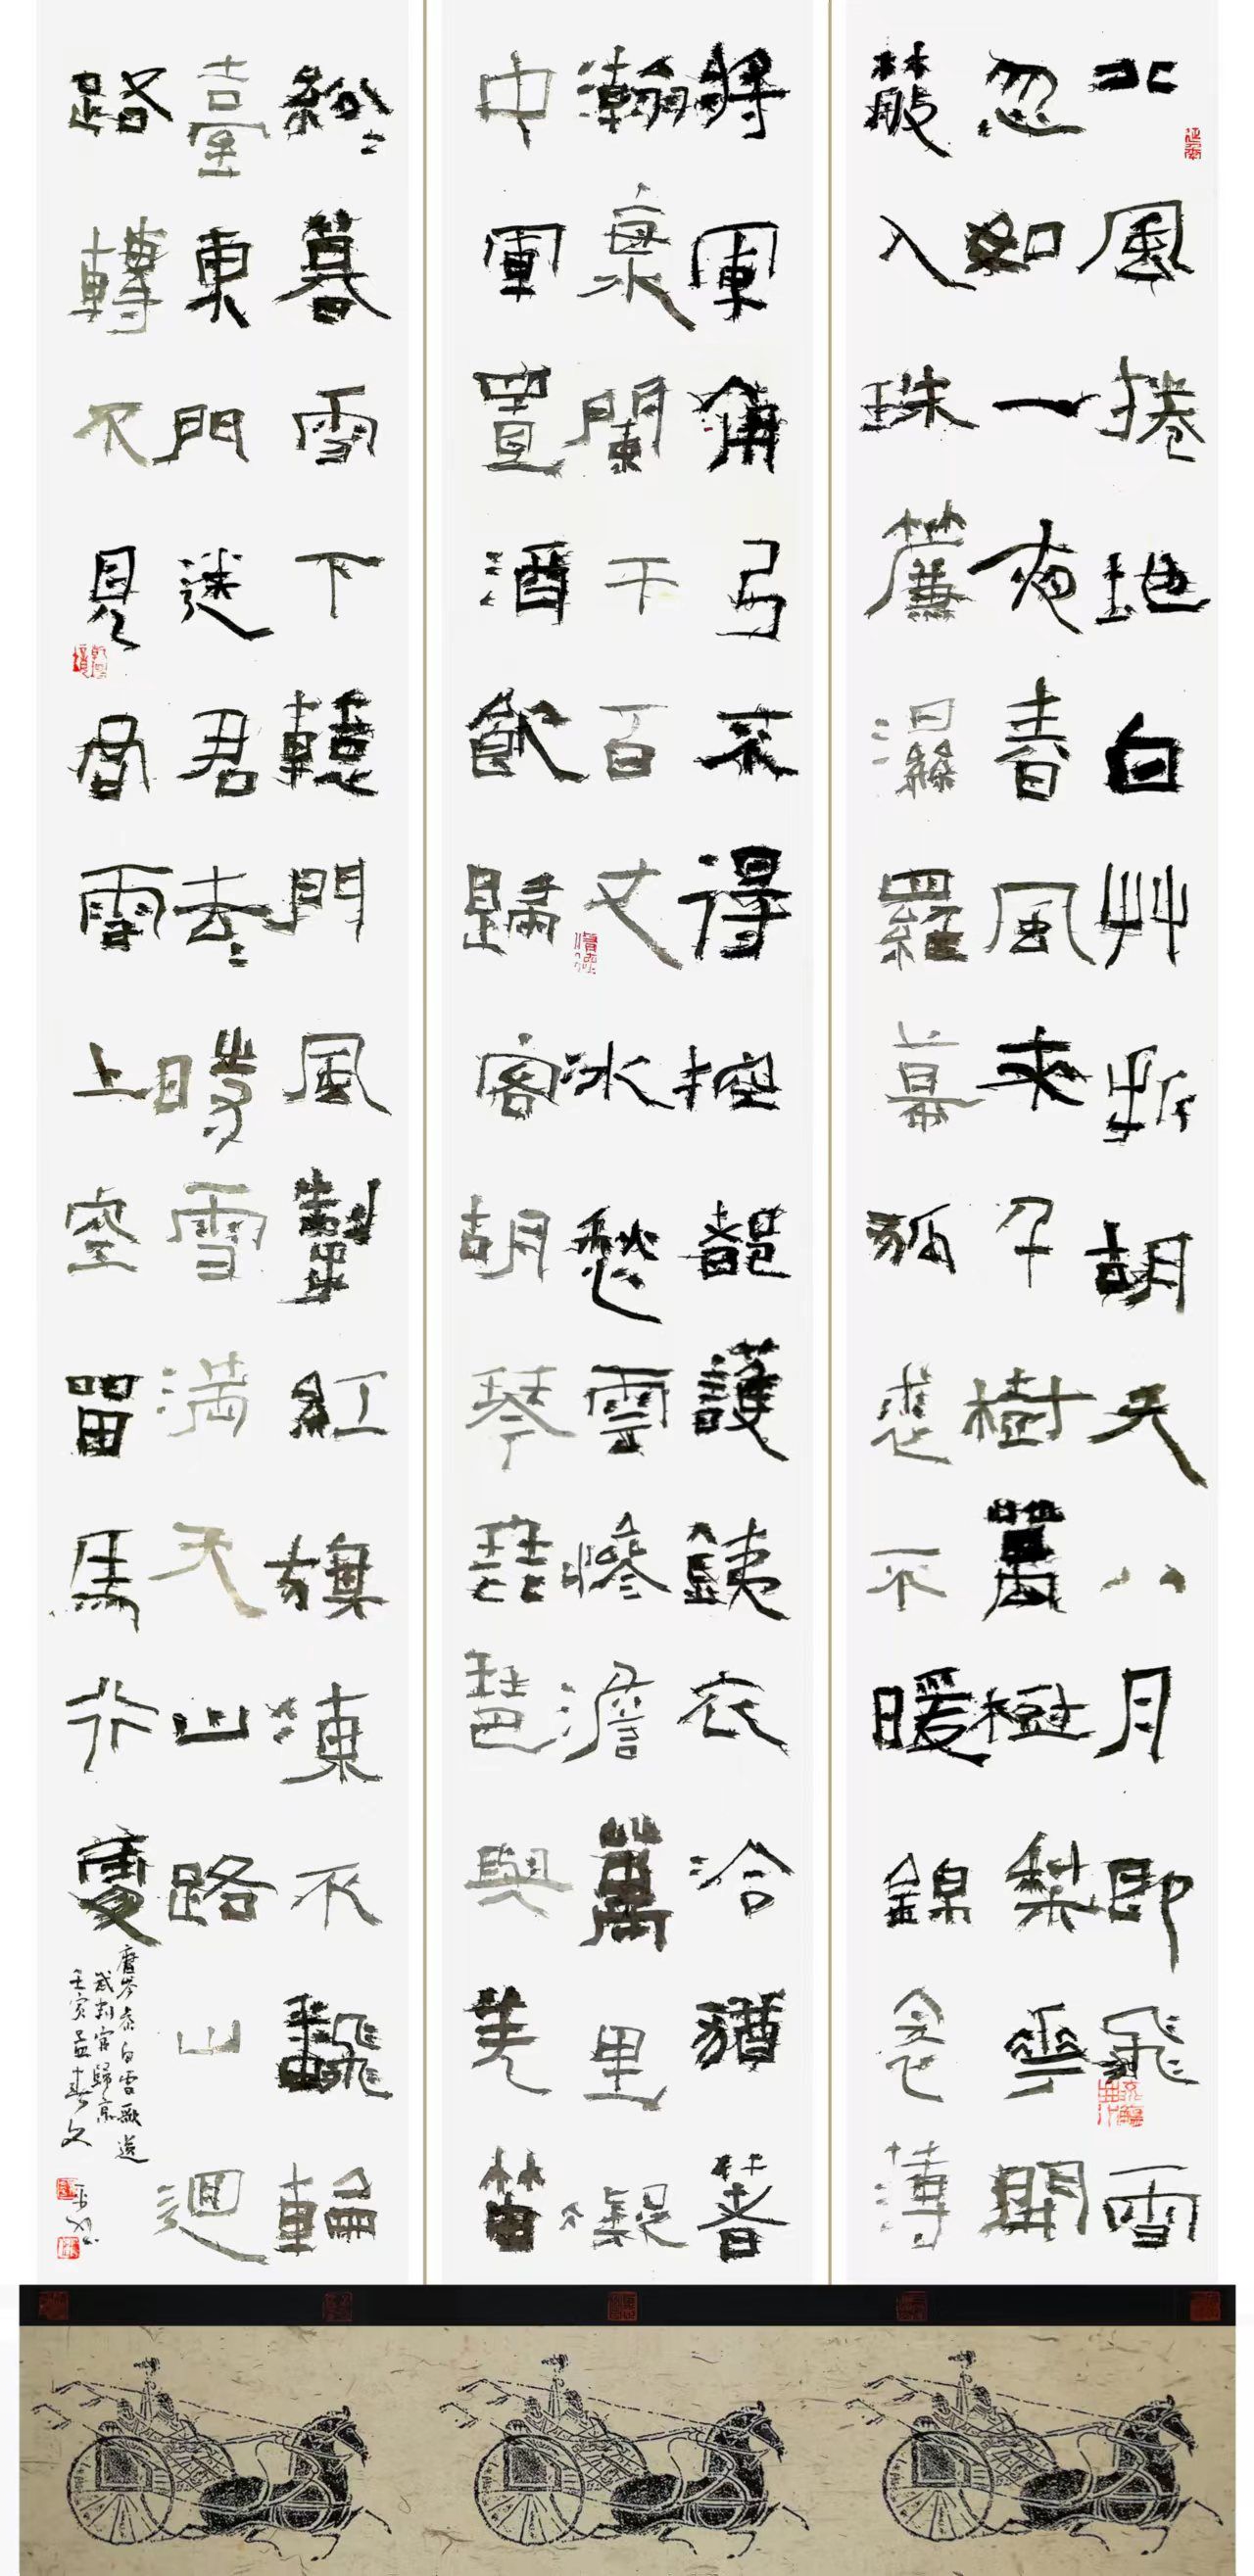 北風捲地白艸折胡天八月即飛雪
忽如一夜春風來千樹萬樹梨華開
散入珠簾濕羅幕狐裘不暖錦衾薄
將軍角弓不得控都護鐵衣冷猶著
瀚海闌干百丈冰愁雲慘澹萬里凝
中軍置酒飲歸客胡琴琵琶與羌笛
紛〻暮雪下轅門風掣紅旗凍不翻輪
臺東門送君去〻時雪滿天山路山迴
路轉不見君雪上空留馬行處
唐岑參白雪歌送
武判官歸京
壬寅孟春文